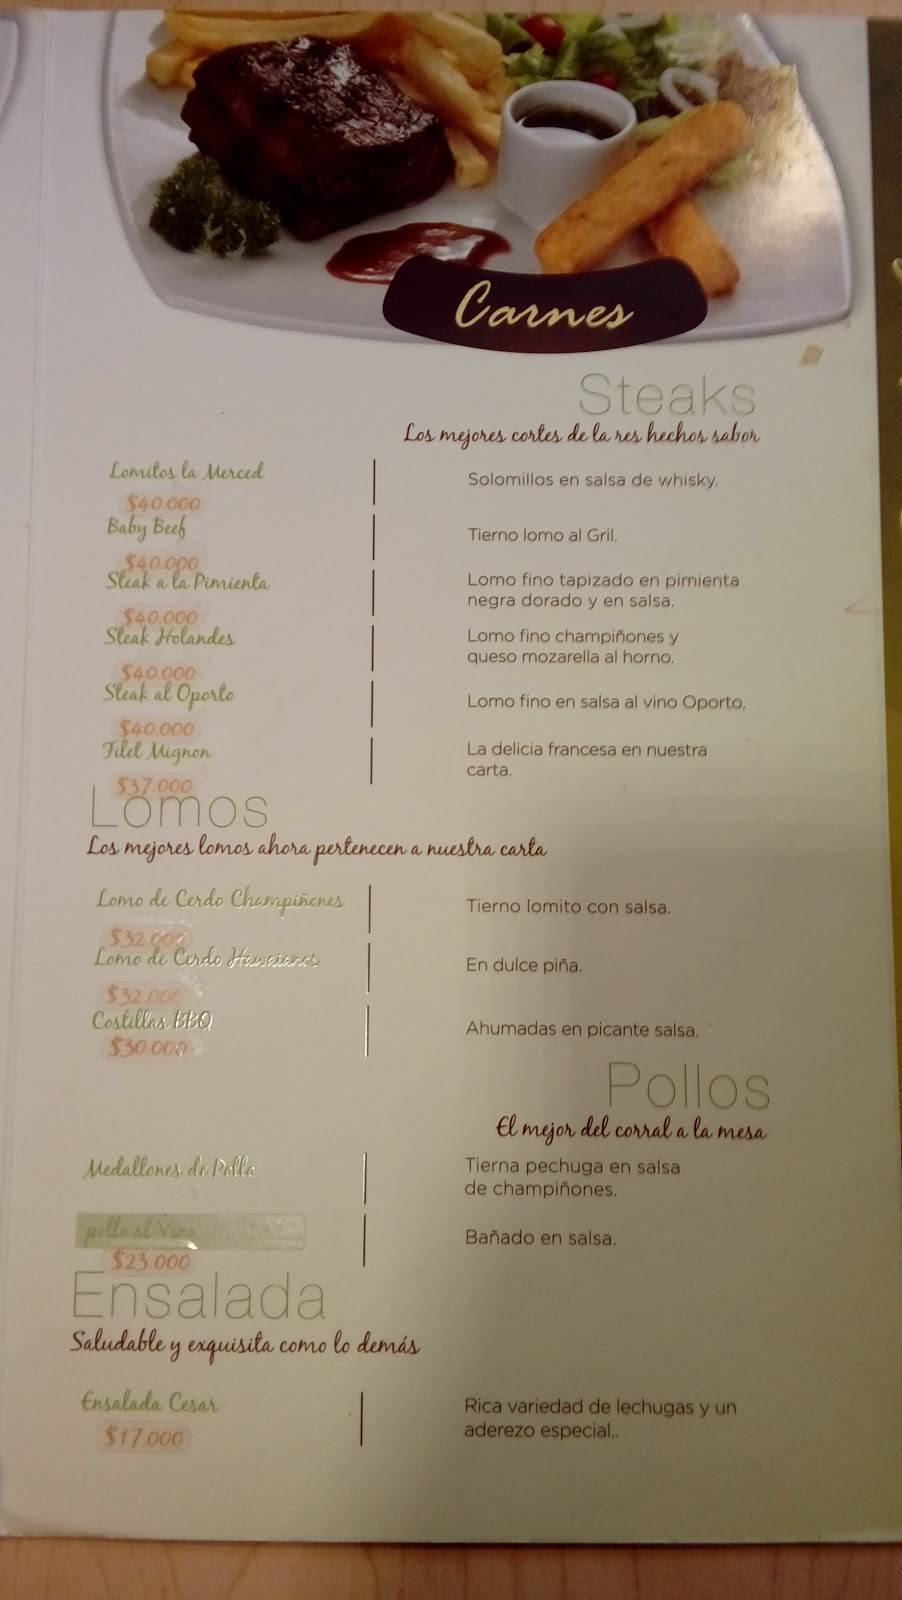 Carnes
Steaks
Los mejores cortes de la res hechos sabor
Lomitos la Merced
Solomillos en salsa de whisky.
$40.000
Baby Beef
Tierno lomo al Gril.
$40.000
Steak a la Pimienta
Lomo fino tapizado en pimienta
negra dorado y en salsa.
$40.000
Steak Holandes
Lomo fino champiñones y
queso mozarella al horno.
$40.000
Steak al Oporto
Lomo fino en salsa al vino Oporto.
$40.000
Filet Mignon
La delicia francesa en nuestra
carta.
$37.000
Lomos
Los mejores lomos ahora pertenecen a nuestra carta
Lomo de Cerdo Champiñones
Tierno lomito con salsa.
$32.000
Lomo de Cerdo Hawaianos
En dulce piña.
$32.000
Costillas BBQ
Ahumadas en picante salsa.
$30.000
Pollos
El mejor del corral a la mesa
Medallones de Pollo
Tierna pechuga en salsa
de champiñones.
pollo al Vino
Bañado en salsa.
$23.000
Ensalada
Saludable y exquisita como lo demás
Ensalada Cesar
Rica variedad de lechugas y un
aderezo especial..
$17.000